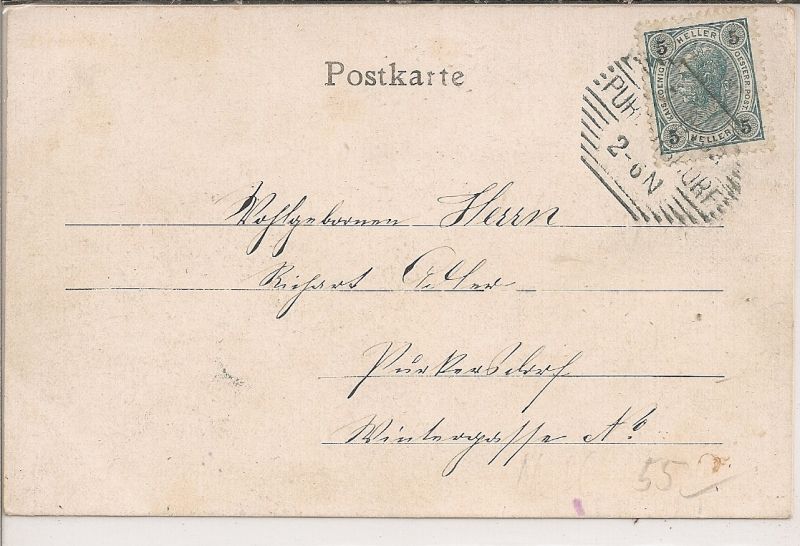 Postkarte
5 HELLER 5
KAIS. KOENIG. OESTERR. POST.
5 HELLER 5
PURKERSDORF
2-6N
Wohlgebornen Herrn
Richart Adler
Purkersdorf
Wintergasse
55